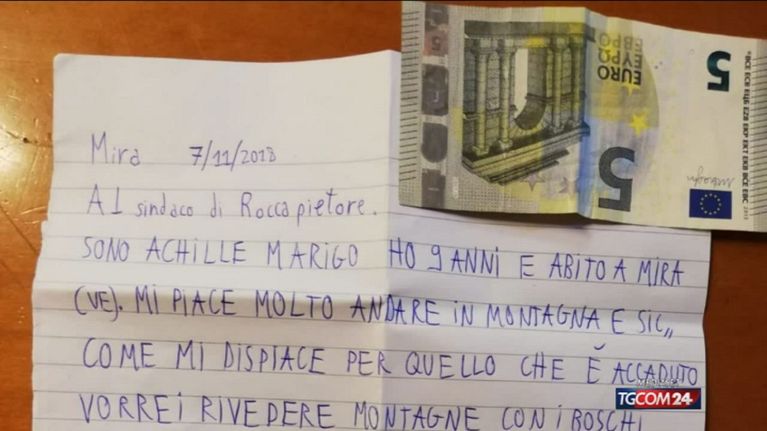 Mira 7/11/2018
Al sindaco di Roccapietore.
SONO ACHILLE MARIGO HO 9 ANNI E ABITO A MIRA
(VE). MI PIACE MOLTO ANDARE IN MONTAGNA E SIC,,
COME MI DISPIACE PER QUELLO CHE È ACCADUTO
VORREI RIVEDERE MONTAGNE CON I BOSCHI
5
EURO
ΕΥΡΩ
ЕВРО
BCE ECB ЕЦБ EZB EKP EKT EKB BCE EBC
5
TGCOM24